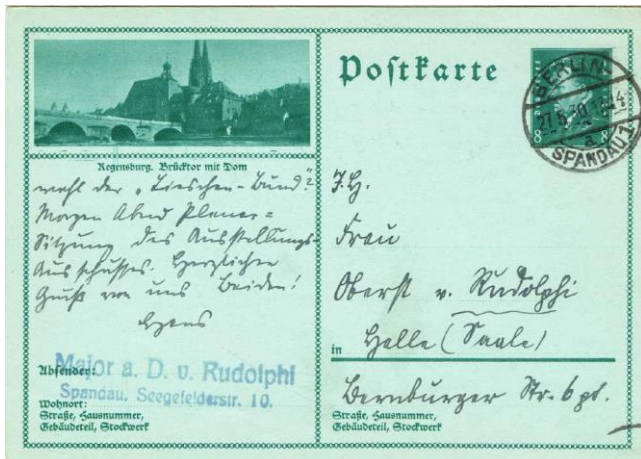 Regensburg. Brücktor mit Dom
wohl der „Lieschen-Bund“?
Morgen Abend Plenar=
Sitzung des Ausstellungs-
Ausschusses. Herzliche
Grüße von uns Beiden!
Absender:
Major a. D. v. Rudolphi
Spandau, Seegefelderstr. 10.
Wohnort:
Straße, Hausnummer,
Gebäudeteil, Stockwerk
Postkarte
BERLIN-
27.5.30.
a
SPANDAU 1
8 8
Frau
Oberst v. Rudolphi
in Halle (Saale)
Bernburger Str. 6 pt.
Straße, Hausnummer,
Gebäudeteil, Stockwerk